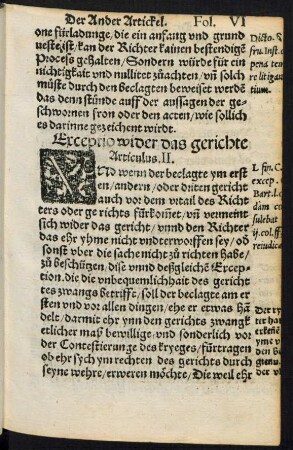 Der Ander Artickel. Fol. VI
one fürladunge, die ein anfang vnd grund
ueste ist, kan der Richter kainen bestendigē
Process gehalten, Sondern würde für ein
nichtigkait vnd nullitet züachten, vñ solch
müste durch den beclagten beweiset werdē
das denn stünde auff der aussagen der ge-
schwornen fron oder den acten, wie sollich
es darinne gezeichent wirdt.
Exceptio wider das gerichte
Articulus. II.
VNd wenn der beclagte ym erst
en, andern, oder driten gericht
auch vor dem vrtail des Richt
ters oder gerichts fürkomet, vñ vermeint
sich wider das gericht, vnnd den Richter
das ehr yhme nicht vndterworffen sey, ob
sonst vber die sache nicht zü richten habe,
zu beschützen, dise vnnd deßgleichē Excep-
tion, die die vnbequemlichkait des gericht
tes zwangs betrifft, soll der beclagte am er
sten vnd vor allen dingen, ehe er etwas hā
delt, darmit ehr ynn den gerichts zwangk
etlicher maß bewillige, vnd sonderlich vor
der Contestierunge des kryeges, fürtragen
ob ehr sych yn rechten des gerichts durch
seyne wehre, erweren möchte, Die weil ehr
Dicto. §
fru. Inst.
pena tem
re litigan
tium.
L. fin. C.
excep.
Bart. l.
dam co
sulebat
ij. col. ff.
reiudica
Der ry
ter han
erkenē
yme v
den be
gtenn.
der vl